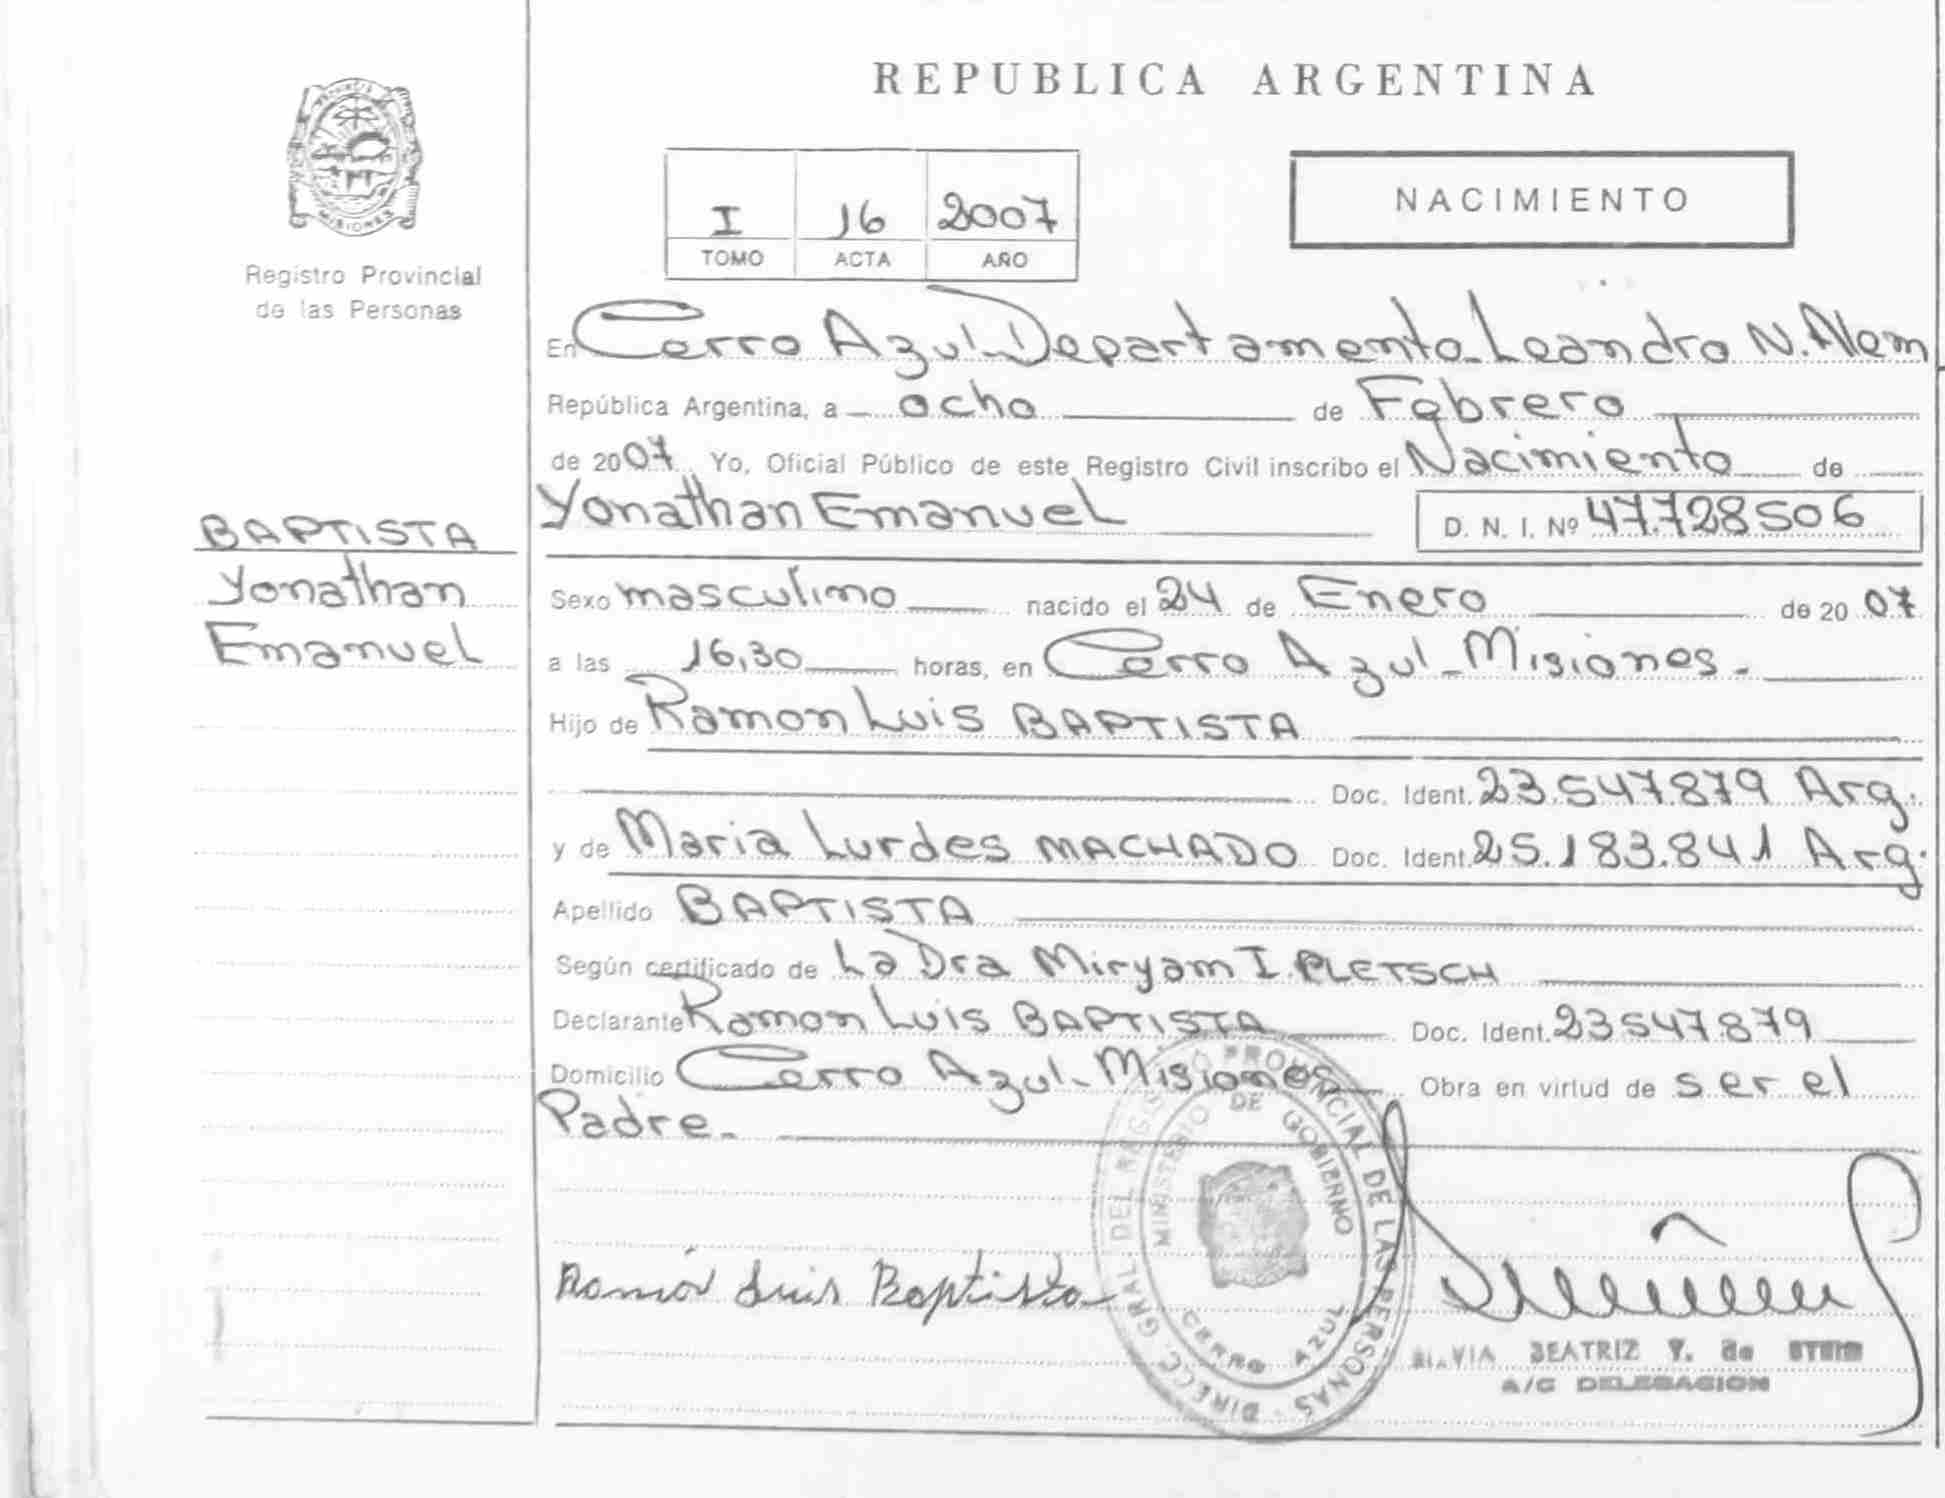 REPUBLICA ARGENTINA
MISIONES
Registro Provincial
de las Personas
I 16 2007
TOMO ACTA AÑO
NACIMIENTO
En Cerro Azul - Departamento - Leandro N. Alem
República Argentina, a ocho de Febrero
de 2007 Yo, Oficial Público de este Registro Civil inscribo el Nacimiento de
Yonathan Emanuel D. N. I. Nº 47.728506
BAPTISTA
Yonathan
Emanuel
Sexo masculino nacido el 24 de Enero de 20 07
a las 16,30 horas, en Cerro Azul - Misiones -
Hijo de Ramon Luis BAPTISTA
Doc. Ident. 23.547.879 Arg.
y de Maria Lurdes MACHADO Doc. Ident. 25.183.841 Arg.
Apellido BAPTISTA
Según certificado de La Dra Miryam I. PLETSCH
Declarante Ramon Luis BAPTISTA Doc. Ident. 23547879
Domicilio Cerro Azul - Misiones Obra en virtud de ser el
Padre -
DIRECC. GRAL. DEL REGISTRO PROVINCIAL DE LAS PERSONAS
MINISTERIO DE GOBIERNO
CERRO AZUL
Ramón Luis Baptista
SILVIA BEATRIZ V. de STEIN
A/C DELEGACION